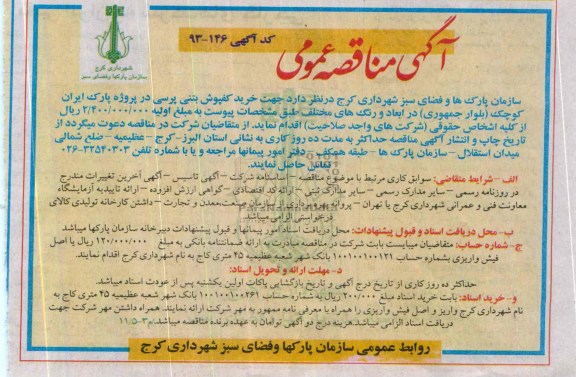 شهرداری کرج
سازمان پارکها وفضای سبز
کد آگهی ۱۴۶-۹۳
آگهی مناقصه عمومی
سازمان پارک ها و فضای سبز شهرداری کرج درنظر دارد جهت خرید کفپوش بتنی پرسی در پروژه پارک ایران
کوچک (بلوار جمهوری) در ابعاد و رنگ های مختلف طبق مشخصات پیوست به مبلغ اولیه ۲/۴۰۰/۰۰۰/۰۰۰ ریال
از کلیه اشخاص حقوقی (شرکت های واجد صلاحیت) اقدام نماید. از متقاضیان شرکت در مناقصه دعوت میگردد از
تاریخ چاپ و انتشار آگهی مناقصه حداکثر به مدت ده روز کاری به نشانی استان البرز- کرج - عظیمیه - ضلع شمالی
میدان استقلال - سازمان پارک ها - طبقه همکف - دفتر امور پیمانها مراجعه و یا با شماره تلفن ۳۲۵۴۰۳۰۳-۰۲۶
تماس حاصل نمایند.
الف - شرایط متقاضی: سوابق کاری مرتبط با موضوع مناقصه - اساسنامه شرکت - آگهی تاسیس - آگهی آخرین تغییرات مندرج
در روزنامه رسمی - سایر مدارک رسمی - سایر مدارک ثبتی - ارائه کد اقتصادی - گواهی ارزش افزوده - ارائه تاییدیه آزمایشگاه
معاونت فنی و عمرانی شهرداری کرج یا تهران - پروانه بهره برداری از سازمان صنعت،معدن و تجارت - داشتن کارخانه تولیدی کالای
درخواستی الزامی میباشد.
ب- محل دریافت اسناد و قبول پیشنهادات: محل دریافت اسناد امور پیمانها و قبول پیشنهادات دبیرخانه سازمان پارکها میباشد
ج- شماره حساب: متقاضیان میبایست بابت شرکت در مناقصه مبادرت به ارائه ضمانتنامه بانکی به مبلغ ۱۲۰/۰۰۰/۰۰۰ ریال یا اصل
فیش واریزی بشماره حساب ۱۰۰۱۰۰۱۰۰۱۲۱ بانک شهر شعبه عظیمیه ۴۵ متری کاج به نام شهرداری کرج اقدام نمایند.
د- مهلت ارائه و تحویل اسناد:
حداکثر ده روز کاری از تاریخ درج آگهی و تاریخ بازگشایی پاکات اولین یکشنبه پس از عودت اسناد میباشد.
و- خرید اسناد: بابت خرید اسناد مبلغ ۲۰۰/۰۰۰ ریال به شماره حساب ۱۰۰۱۰۰۱۰۰۲۴۶۱ بانک شهر شعبه عظیمیه ۴۵ متری کاج به
نام شهرداری کرج واریز و اصل فیش واریزی را همراه با معرفی نامه ممهور به مهر شرکت ارائه نمایند. همراه داشتن مهر شرکت جهت
دریافت اسناد الزامی میباشد.هزینه درج دو آگهی توامان به عهده برنده مناقصه میباشد.
روابط عمومی سازمان پارکها وفضای سبز شهرداری کرج